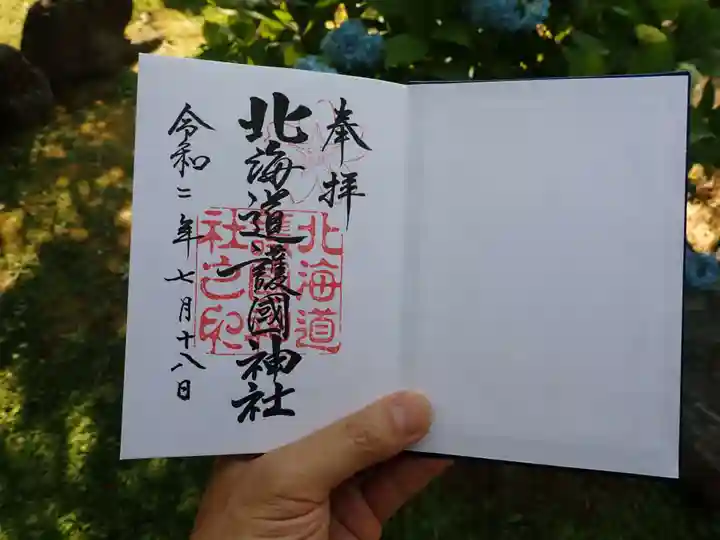 奉拝
北海道護國神社
北海道
護國神
社之印
令和二年七月十八日